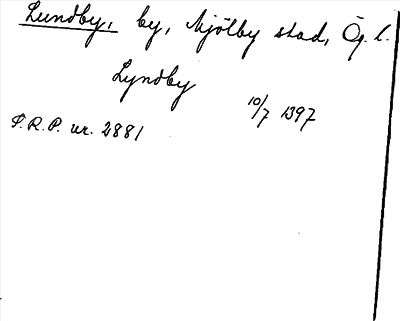 Lundby, by, Mjölby stad, Ög. l.
Lyndby
10/7 1397
P.R.P. nr. 2881